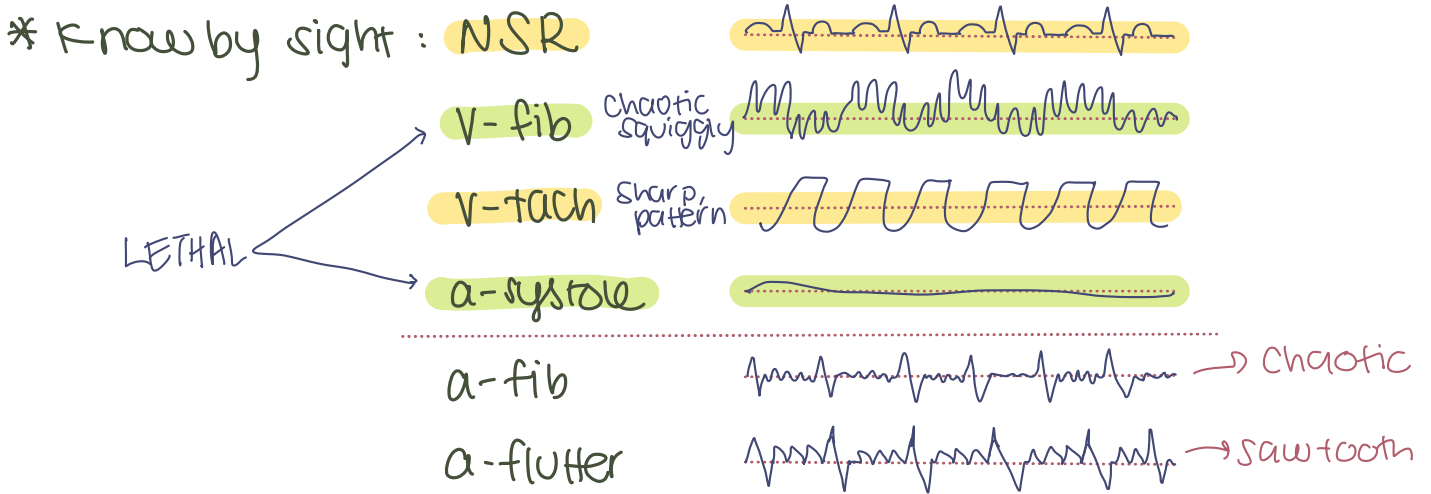 * Know by sight : NSR
V-fib chaotic
squiggly
V-tach sharp,
pattern
LETHAL
a-systole
a-fib chaotic
a-flutter sawtooth